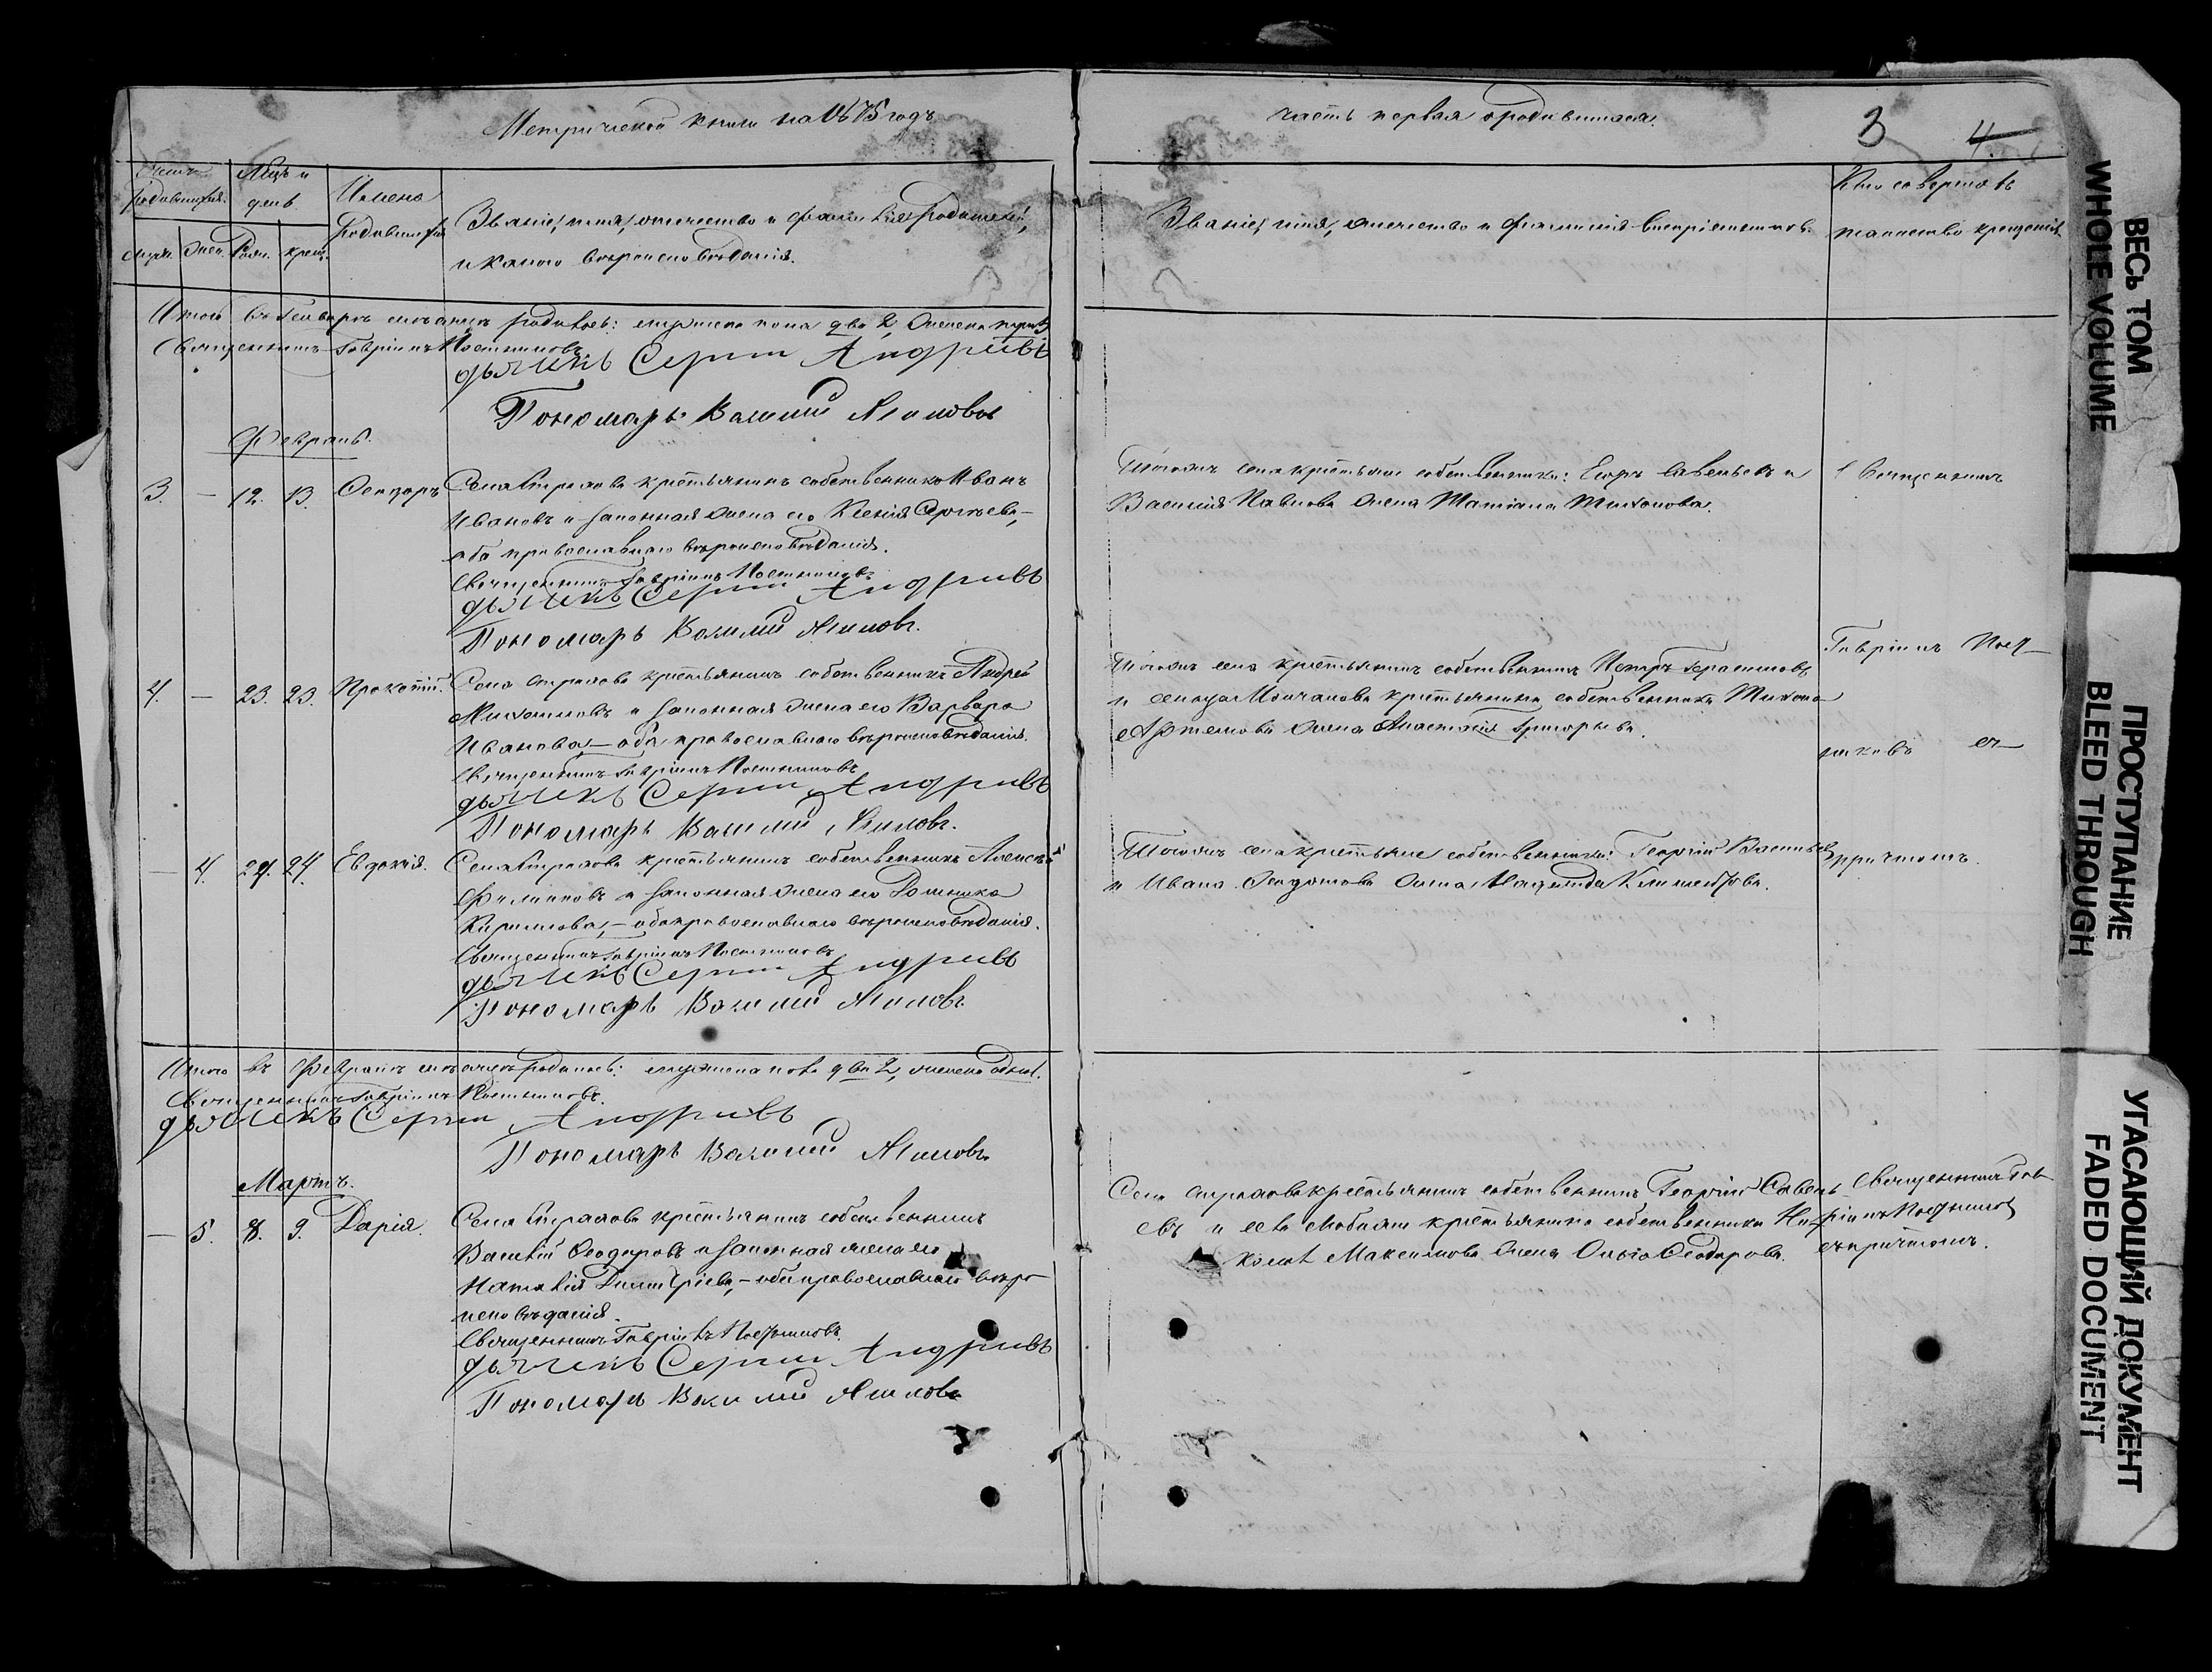 Метрической книги на 1875 годъ
часть первая о родившихся.
3 4.
Счетъ родившихся.
Мѣсяцъ и день.
Имена родившихся
Званіе, имя, отечество и фамилія родителей,
и какого вѣроисповѣданія.
Званіе, имя, отечество и фамилія воспріемниковъ.
Кто совершалъ
таинство крещенія
муж. жен. Рожд. крещ.
Итого въ Генварѣ мѣсяцѣ родилось: мужеска пола два 2, женска три 3
Священникъ Гавріилъ Постниковъ
дьячекъ Сергій Андреевъ
Пономарь Василій
Февраль.
3. — 12. 13. Ѳеодоръ
Села Стралова крестьянинъ собственникъ Иванъ
Ивановъ и законная жена его Ксенія Сергѣева,—
оба православнаго вѣроисповѣданія.
Священникъ Гавріилъ Постниковъ
дьячекъ Сергій Андреевъ
Пономарь Василій
Тогожъ села крестьяне собственники: Егоръ Савельевъ и
Василія Павлова жена Татіана Тихонова.
Священникъ
4. — 23. 23. Прокопій.
Села Стралова крестьянинъ собственникъ Андрей
и законная жена его Варвара
Иванова,— оба православнаго вѣроисповѣданія.
Священникъ Гавріилъ Постниковъ
дьячекъ Сергій Андреевъ
Пономарь Василій
Тогожъ села крестьянинъ собственникъ Петръ Герасимовъ
и сельца Молчанова крестьянина собственника Тихона
Артемова жена Анастасія Григорьева.
Гавріилъ Пост-
никовъ съ
— 4. 24. 24. Евдокія.
Села Стралова крестьянинъ собственникъ Алексѣй
Филиповъ и законная жена его Домника
Кирилова,— оба православнаго вѣроисповѣданія.
Священникъ Гавріилъ Постниковъ
дьячекъ Сергій Андреевъ
Пономарь Василій
Тогожъ села крестьяне собственники: Георгій Васильевъ
и Ивана Ѳедотова жена Надежда
причтомъ.
Итого въ Февралѣ мѣсяцѣ родилось: мужеска пола два 2, женска одна 1.
Священникъ Гавріилъ Постниковъ.
дьячекъ Сергій Андреевъ
Пономарь Василій
Мартъ.
— 5. 8. 9. Дарія.
Села Стралова крестьянинъ собственникъ
Василій Ѳеодоровъ и законная жена его
Наталія Димитріева,— оба православнаго вѣро-
исповѣданія.
Священникъ Гавріилъ Постниковъ.
дьячекъ Сергій Андреевъ
Пономарь Василій
Села Стралова крестьянинъ собственникъ Георгій Савель-
евъ и крестьянина собственника Ни-
колая Максимова жена Ольга Ѳеодорова.
Священникъ Гав-
ріилъ Постниковъ
съ причтомъ.
ВЕСЬ ТОМ
WHOLE VOLUME
ПРОСТУПАНИЕ
BLEED THROUGH
УГАСАЮЩИЙ ДОКУМЕНТ
FADED DOCUMENT